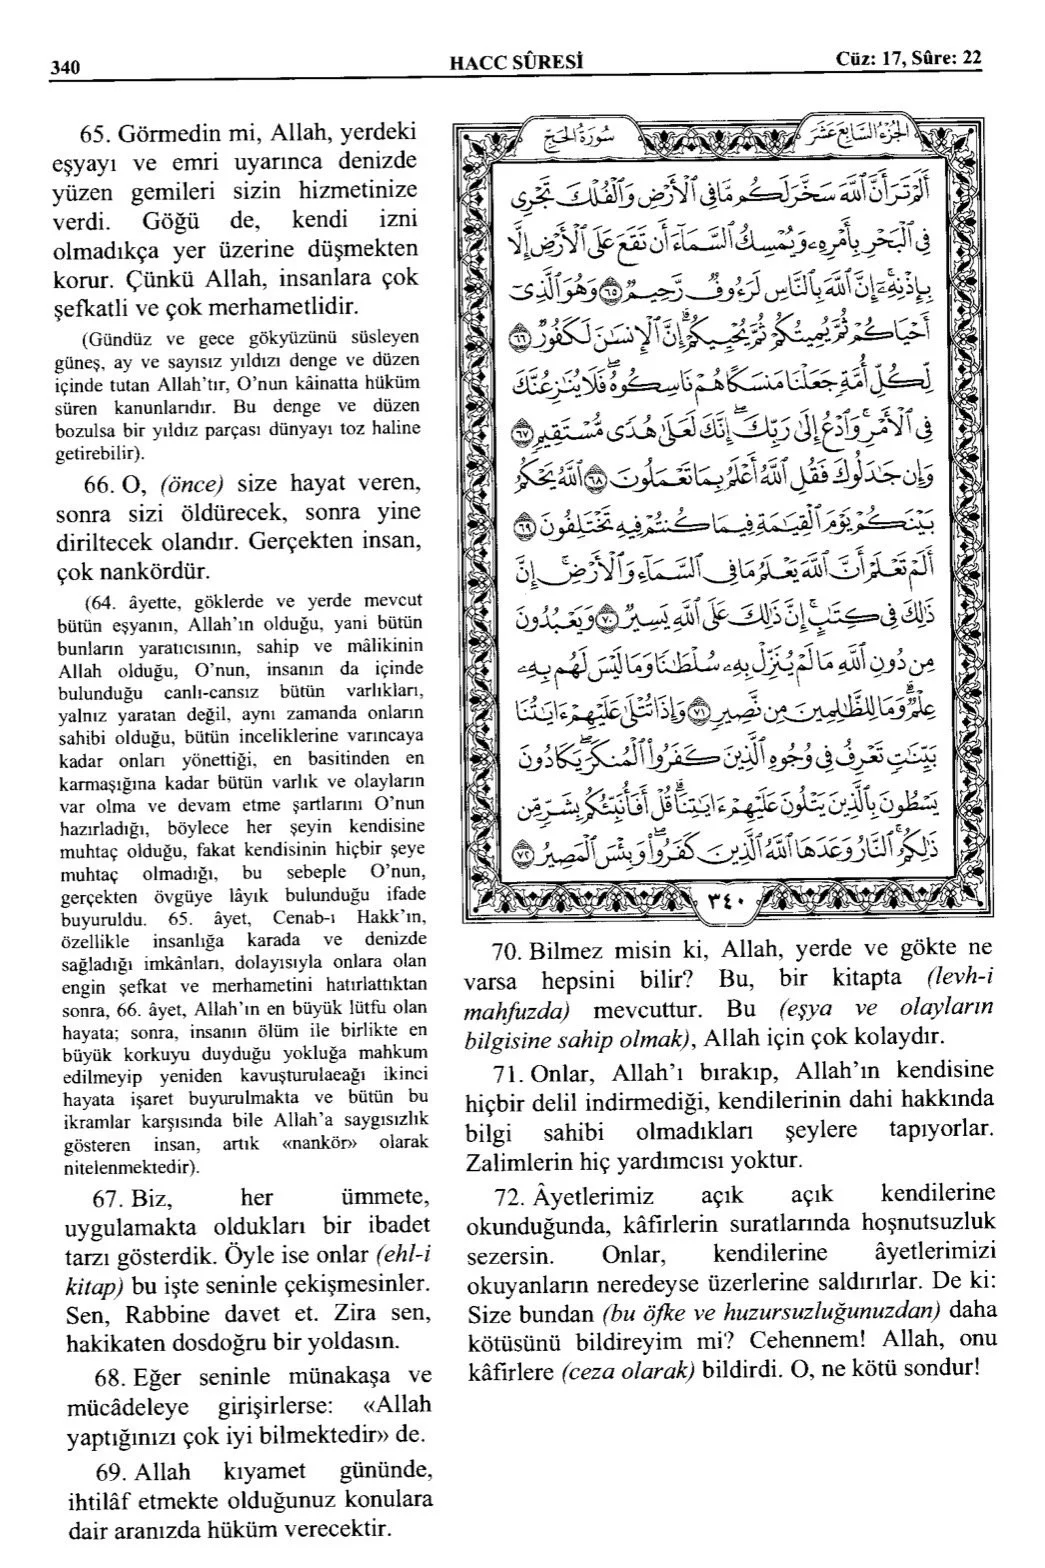 340
HACC SÛRESİ
Cüz: 17, Sûre: 22
65. Görmedin mi, Allah, yerdeki
eşyayı ve emri uyarınca denizde
yüzen gemileri sizin hizmetinize
verdi. Göğü de, kendi izni
olmadıkça yer üzerine düşmekten
korur. Çünkü Allah, insanlara çok
şefkatli ve çok merhametlidir.
(Gündüz ve gece gökyüzünü süsleyen
güneş, ay ve sayısız yıldızı denge ve düzen
içinde tutan Allah’tır, O’nun kâinatta hüküm
süren kanunlarıdır. Bu denge ve düzen
bozulsa bir yıldız parçası dünyayı toz haline
getirebilir).
66. O, (önce) size hayat veren,
sonra sizi öldürecek, sonra yine
diriltecek olandır. Gerçekten insan,
çok nankördür.
(64. âyette, göklerde ve yerde mevcut
bütün eşyanın, Allah’ın olduğu, yani bütün
bunların yaratıcısının, sahip ve mâlikinin
Allah olduğu, O’nun, insanın da içinde
bulunduğu canlı-cansız bütün varlıkları,
yalnız yaratan değil, aynı zamanda onların
sahibi olduğu, bütün inceliklerine varıncaya
kadar onları yönettiği, en basitinden en
karmaşığına kadar bütün varlık ve olayların
var olma ve devam etme şartlarını O’nun
hazırladığı, böylece her şeyin kendisine
muhtaç olduğu, fakat kendisinin hiçbir şeye
muhtaç olmadığı, bu sebeple O’nun,
gerçekten övgüye lâyık bulunduğu ifade
buyuruldu. 65. âyet, Cenab-ı Hakk’ın,
özellikle insanlığa karada ve denizde
sağladığı imkânları, dolayısıyla onlara olan
engin şefkat ve merhametini hatırlattıktan
sonra, 66. âyet, Allah’ın en büyük lütfu olan
hayata; sonra, insanın ölüm ile birlikte en
büyük korkuyu duyduğu yokluğa mahkum
edilmeyip yeniden kavuşturulacağı ikinci
hayata işaret buyurulmakta ve bütün bu
ikramlar karşısında bile Allah’a saygısızlık
gösteren insan, artık «nankör» olarak
nitelenmektedir).
67. Biz, her ümmete,
uygulamakta oldukları bir ibadet
tarzı gösterdik. Öyle ise onlar (ehl-i
kitap) bu işte seninle çekişmesinler.
Sen, Rabbine davet et. Zira sen,
hakikaten dosdoğru bir yoldasın.
68. Eğer seninle münakaşa ve
mücâdeleye girişirlerse: «Allah
yaptığınızı çok iyi bilmektedir» de.
69. Allah kıyamet gününde,
ihtilâf etmekte olduğunuz konulara
dair aranızda hüküm verecektir.
الجزء السابع عشر
سورة الحج
أَلَمْ تَرَ أَنَّ اللَّهَ سَخَّرَ لَكُم مَّا فِي الْأَرْضِ وَالْفُلْكَ تَجْرِي
فِي الْبَحْرِ بِأَمْرِهِ وَيُمْسِكُ السَّمَاءَ أَن تَقَعَ عَلَى الْأَرْضِ إِلَّا
بِإِذْنِهِ إِنَّ اللَّهَ بِالنَّاسِ لَرَءُوفٌ رَّحِيمٌ ٦٥ وَهُوَ الَّذِي
أَحْيَاكُمْ ثُمَّ يُمِيتُكُمْ ثُمَّ يُحْيِيكُمْ إِنَّ الْإِنسَانَ لَكَفُورٌ ٦٦
لِّكُلِّ أُمَّةٍ جَعَلْنَا مَنسَكًا هُمْ نَاسِكُوهُ فَلَا يُنَازِعُنَّكَ
فِي الْأَمْرِ وَادْعُ إِلَىٰ رَبِّكَ إِنَّكَ لَعَلَىٰ هُدًى مُّسْتَقِيمٍ ٦٧
وَإِن جَادَلُوكَ فَقُلِ اللَّهُ أَعْلَمُ بِمَا تَعْمَلُونَ ٦٨ اللَّهُ يَحْكُمُ
بَيْنَكُمْ يَوْمَ الْقِيَامَةِ فِيمَا كُنتُمْ فِيهِ تَخْتَلِفُونَ ٦٩
أَلَمْ تَعْلَمْ أَنَّ اللَّهَ يَعْلَمُ مَا فِي السَّمَاءِ وَالْأَرْضِ إِنَّ
ذَٰلِكَ فِي كِتَابٍ إِنَّ ذَٰلِكَ عَلَى اللَّهِ يَسِيرٌ ٧٠ وَيَعْبُدُونَ
مِن دُونِ اللَّهِ مَا لَمْ يُنَزِّلْ بِهِ سُلْطَانًا وَمَا لَيْسَ لَهُم بِهِ
عِلْمٌ وَمَا لِلظَّالِمِينَ مِن نَّصِيرٍ ٧١ وَإِذَا تُتْلَىٰ عَلَيْهِمْ آيَاتُنَا
بَيِّنَاتٍ تَعْرِفُ فِي وُجُوهِ الَّذِينَ كَفَرُوا الْمُنكَرَ يَكَادُونَ
يَسْطُونَ بِالَّذِينَ يَتْلُونَ عَلَيْهِمْ آيَاتِنَا قُلْ أَفَأُنَبِّئُكُم بِشَرٍّ مِّن
ذَٰلِكُمُ النَّارُ وَعَدَهَا اللَّهُ الَّذِينَ كَفَرُوا وَبِئْسَ الْمَصِيرُ ٧٢
٣٤٠
70. Bilmez misin ki, Allah, yerde ve gökte ne
varsa hepsini bilir? Bu, bir kitapta (levh-i
mahfuzda) mevcuttur. Bu (eşya ve olayların
bilgisine sahip olmak), Allah için çok kolaydır.
71. Onlar, Allah’ı bırakıp, Allah’ın kendisine
hiçbir delil indirmediği, kendilerinin dahi hakkında
bilgi sahibi olmadıkları şeylere tapıyorlar.
Zalimlerin hiç yardımcısı yoktur.
72. Âyetlerimiz açık açık kendilerine
okunduğunda, kâfirlerin suratlarında hoşnutsuzluk
sezersin. Onlar, kendilerine âyetlerimizi
okuyanların neredeyse üzerlerine saldırırlar. De ki:
Size bundan (bu öfke ve huzursuzluğunuzdan) daha
kötüsünü bildireyim mi? Cehennem! Allah, onu
kâfirlere (ceza olarak) bildirdi. O, ne kötü sondur!